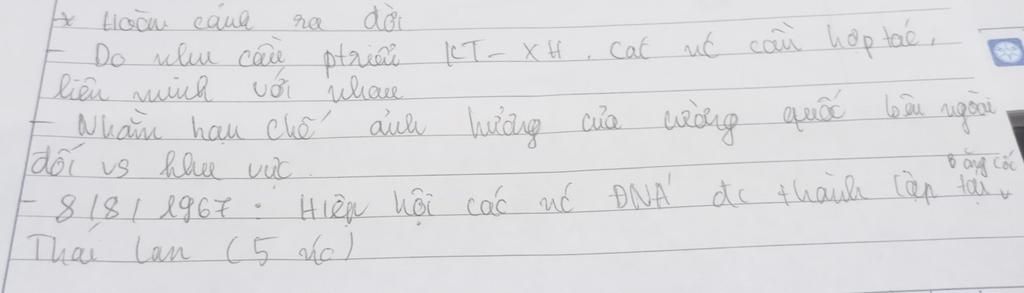 * Hoàn cảnh ra đời
- Do nhu cầu ptriển KT - XH, các nc cần hợp tác,
liên minh với nhau
- Nhằm hạn chế ảnh hưởng của cường quốc bên ngoài
đối vs khu vực.
- 8/8/1967: Hiệp hội các nc ĐNÁ đc thành lập tại Băng Cốc
Thái Lan (5 nc)